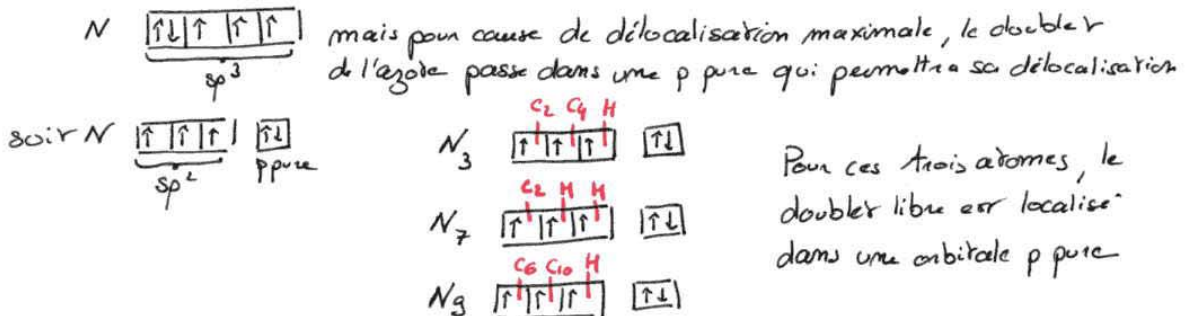 N ↑↓ ↑ ↑ ↑ mais pour cause de délocalisation maximale, le doublet
sp³ de l'azote passe dans une p pure qui permettra sa délocalisation
soit N ↑ ↑ ↑ ↑↓
sp² p pure
C2 C4 H
N3 ↑ ↑ ↑ ↑↓
C2 H H
N7 ↑ ↑ ↑ ↑↓
C6 C10 H
N9 ↑ ↑ ↑ ↑↓
Pour ces trois atomes, le
doublet libre est localisé
dans une orbitale p pure